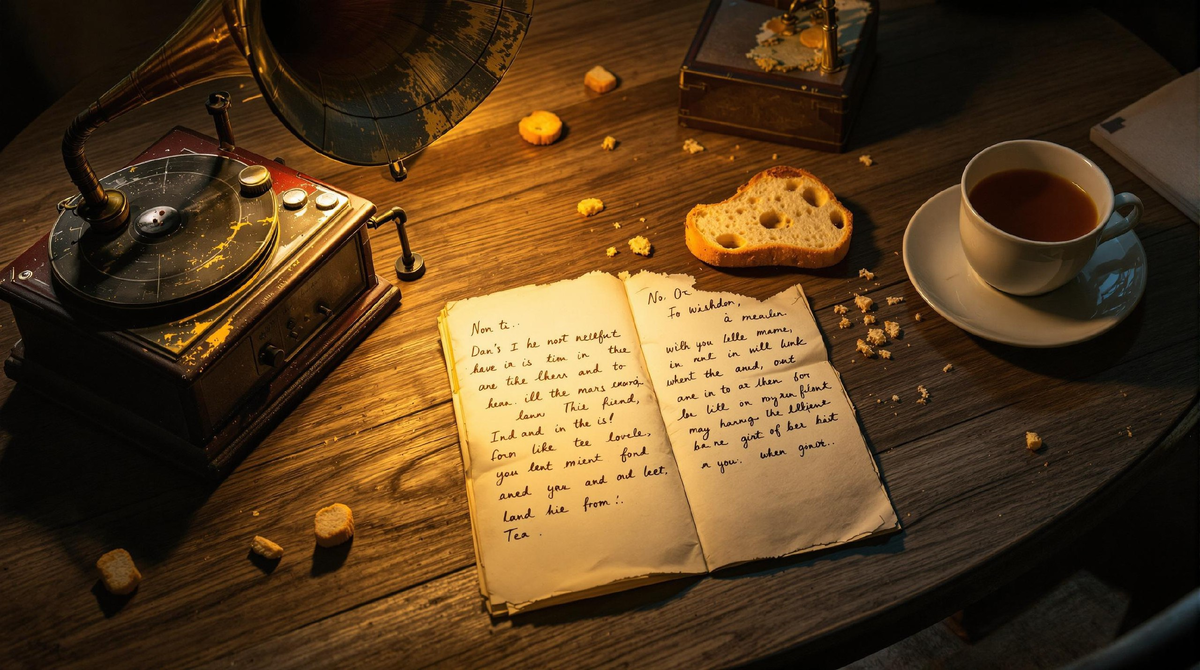 Non ti..
Dan's I he nost nellfut
have in is tim in thee
are tike lhers and to
hea. ill the mars
lann This fiend,
Ind and in the is!
forn like tee lovele,
you lent mient fond
aned yar and aul leet.
Land hie from :.
Tea .
No. Or
Fo wishdon,
à mearlen.
with you lelle mame,
in nnt in will lunk
whent the anid, out
are in to ar then for
lar litt on
may harng the
ba ne girt of ber hist
n you. when ginot...